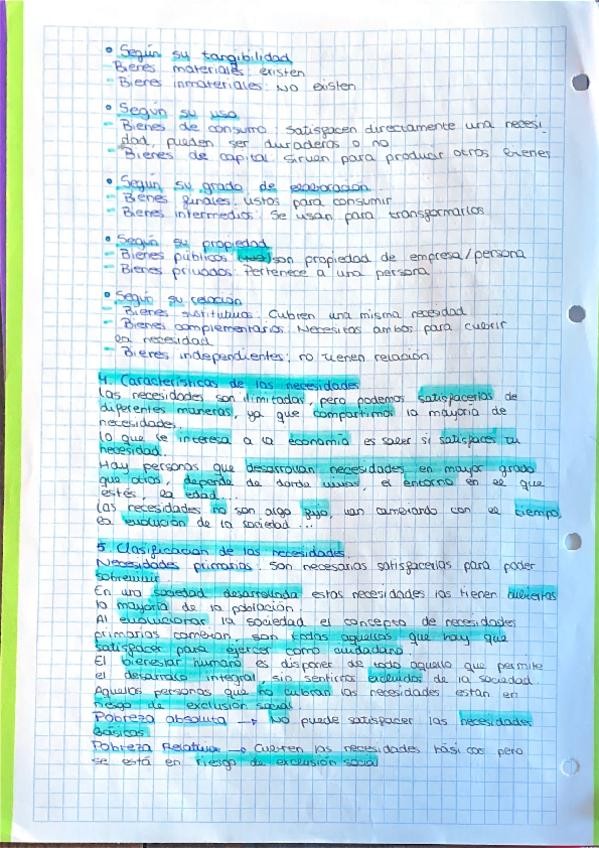 • Según su tangibilidad
Bienes materiales: existen
- Bienes inmateriales: NO existen
• Según su uso
- Bienes de consumo: satisfacen directamente una necesi-
dad, pueden ser duraderos o no
- Bienes de capital: sirven para producir otros bienes
• Según su grado de elaboración
- Bienes finales: listos para consumir
- Bienes intermedios: Se usan para transformarlos
• Según su propiedad
- Bienes públicos son propiedad de empresa/persona
- Bienes privados: Pertenece a una persona
• Según su relación
- Bienes sustitutivos: Cubren una misma necesidad
- Bienes complementarios: Necesitas ambos para cubrir
la necesidad
- Bienes independientes: no tienen relación
4. Características de las necesidades
Las necesidades son ilimitadas, pero podemos satisfacerlas de
diferentes maneras, ya que compartimos la mayoría de
necesidades.
Lo que le interesa a la economía es saber si satisfaces tu
necesidad.
Hay personas que desarrollan necesidades en mayor grado
que otras, depende de donde vivas, el entorno en el que
estés, la edad...
Las necesidades no son algo fijo, van cambiando con el tiempo,
la evolución de la sociedad...
5. Clasificación de las necesidades.
Necesidades primarias: Son necesarias satisfacerlas para poder
sobrevivir.
En una sociedad desarrollada estas necesidades las tienen cubiertas
la mayoría de la población.
Al evolucionar la sociedad el concepto de necesidades
primarias cambian, son todas aquellas que hay que
satisfacer para ejercer como ciudadano.
El bienestar humano es disponer de todo aquello que permite
el desarrollo integral, sin sentirnos excluidos de la sociedad.
Aquellas personas que no cubran las necesidades están en
riesgo de exclusión social.
Pobreza absoluta → No puede satisfacer las necesidades
básicas
Pobreza Relativa → Cubren las necesidades básicas pero
se está en riesgo de exclusión social